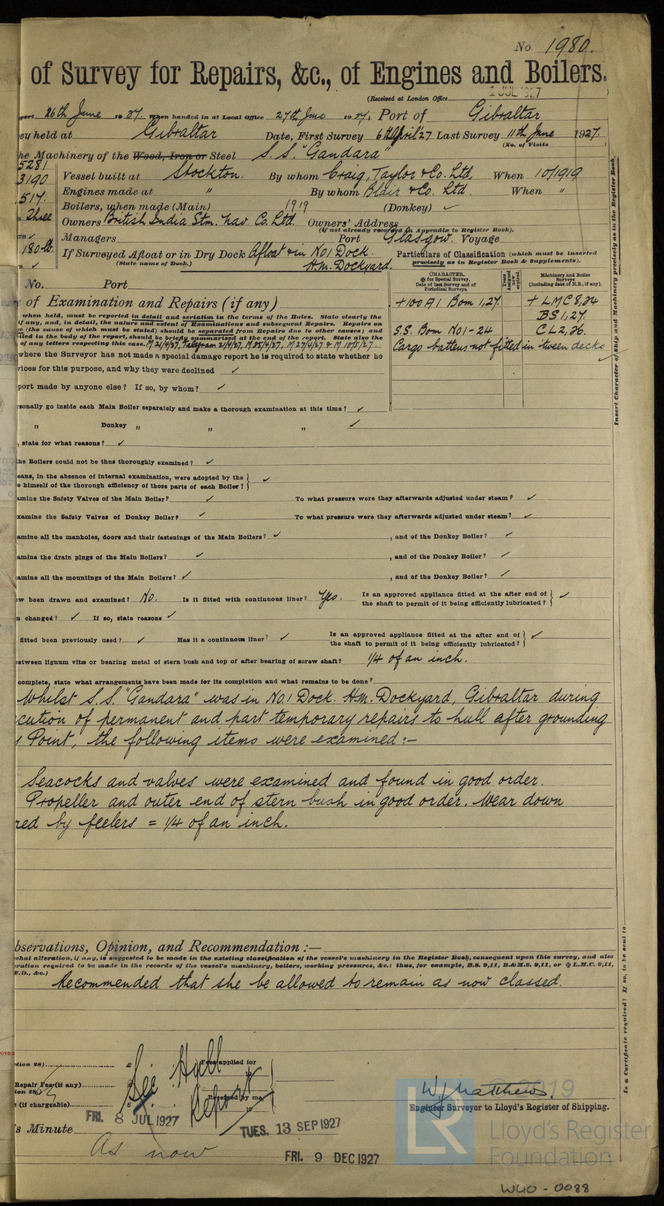 No 1980.
of Survey for Repairs, &c., of Engines and Boilers.
(Received at London Office 1 JUL 1927)
26th June 1927. When handed in at Local Office 27th June 1927. Port of Gibraltar
held at Gibraltar Date, First Survey 6th April 27 Last Survey 11th June 1927
(No. of Visits
Machinery of the Wood, Iron or Steel S.S. "Gandara"
5281
3190 Vessel built at Stockton. By whom Craig, Taylor & Co. Ltd When 10/1919
517. Engines made at " By whom Blair & Co. Ltd. When "
Boilers, when made (Main) 1919 (Donkey) ✓
Owners British India Stm. Nav Co. Ltd Owners' Address
(if not already recorded in Appendix to Register Book).
180 lb. ✓ Managers Port Glasgow. Voyage
If Surveyed Afloat or in Dry Dock Afloat & in No 1 Dock
(State name of Dock.) H.M. Dockyard.
Particulars of Classification (which must be inserted
precisely as in Register Book & Supplements).
No. Port
CHARACTER.
for Special Survey.
Date of last Survey and of
Periodical Surveys.
Machinery and Boiler
Surveys
(including date of N.B., if any).
+100A1 Bom 1,27. + LMC 8,24
BS 1,27.
S.S. Bom No1-24 CL 2,26.
Cargo battens not fitted in tween decks
Insert Character of Ship and Machinery precisely as in the Register Book.
of Examination and Repairs (if any)
when held, must be reported in detail and seriatim in the terms of the Rules. State clearly the
if any, and, in detail, the nature and extent of Examinations and subsequent Repairs. Repairs on
(the cause of which must be stated) should be separated from Repairs due to other causes; and
in the body of the report, should be briefly summarised at the end of the report. State also the
of any letters respecting this case.
where the Surveyor has not made a special damage report he is required to state whether he
vices for this purpose, and why they were declined ✓
port made by anyone else? If so, by whom? ✓
sonally go inside each Main Boiler separately and make a thorough examination at this time? ✓
" Donkey " " " ✓
, state for what reasons? ✓
the Boilers could not be thus thoroughly examined? ✓
eans, in the absence of internal examination, were adopted by the
himself of the thorough efficiency of those parts of each Boiler? ✓
xamine the Safety Valves of the Main Boiler? ✓ To what pressure were they afterwards adjusted under steam? ✓
xamine the Safety Valves of Donkey Boiler? ✓ To what pressure were they afterwards adjusted under steam? ✓
amine all the manholes, doors and their fastenings of the Main Boilers? ✓ , and of the Donkey Boiler? ✓
amine the drain plugs of the Main Boilers? ✓ , and of the Donkey Boiler? ✓
amine all the mountings of the Main Boilers? ✓ , and of the Donkey Boiler? ✓
w been drawn and examined? No. Is it fitted with continuous liner? Yes. Is an approved appliance fitted at the after end of
the shaft to permit of it being efficiently lubricated? ✓
n changed? ✓ If so, state reasons ✓
fitted been previously used? ✓ Has it a continuous liner? ✓ Is an approved appliance fitted at the after end of
the shaft to permit of it being efficiently lubricated? ✓
etween lignum vitæ or bearing metal of stern bush and top of after bearing of screw shaft? 1/4 of an inch.
complete, state what arrangements have been made for its completion and what remains to be done?
Whilst S.S. "Gandara" was in No. 1 Dock. H.M. Dockyard, Gibraltar during
cution of permanent and part temporary repairs to hull after grounding
Point, the following items were examined:-
Seacocks and valves were examined and found in good order.
Propeller and outer end of stern bush in good order. Wear down
red by feelers = 1/4 of an inch.
bservations, Opinion, and Recommendation:—
what alteration, if any, is suggested to be made in the existing classification of the vessel's machinery in the Register Book, consequent upon this survey, and also
ration required to be made in the records of the vessel's machinery, boilers, working pressures, &c.: thus, for example, B.S. 9,11, B.&M.S. 9,11, or L.M.C. 9,11,
Recommended that she be allowed to remain as now classed.
Is a Certificate required? If so, to be sent to
Fees applied for
Repair Fee (if any)
Received by me,
(if chargeable)
See Hull Report
W J Matthews.
Engineer Surveyor to Lloyd's Register of Shipping.
's Minute FRI. 8 JUL 1927
TUES. 13 SEP 1927
As now
FRI. 9 DEC 1927
LR
2019
Lloyd's Register
Foundation
W40-0088